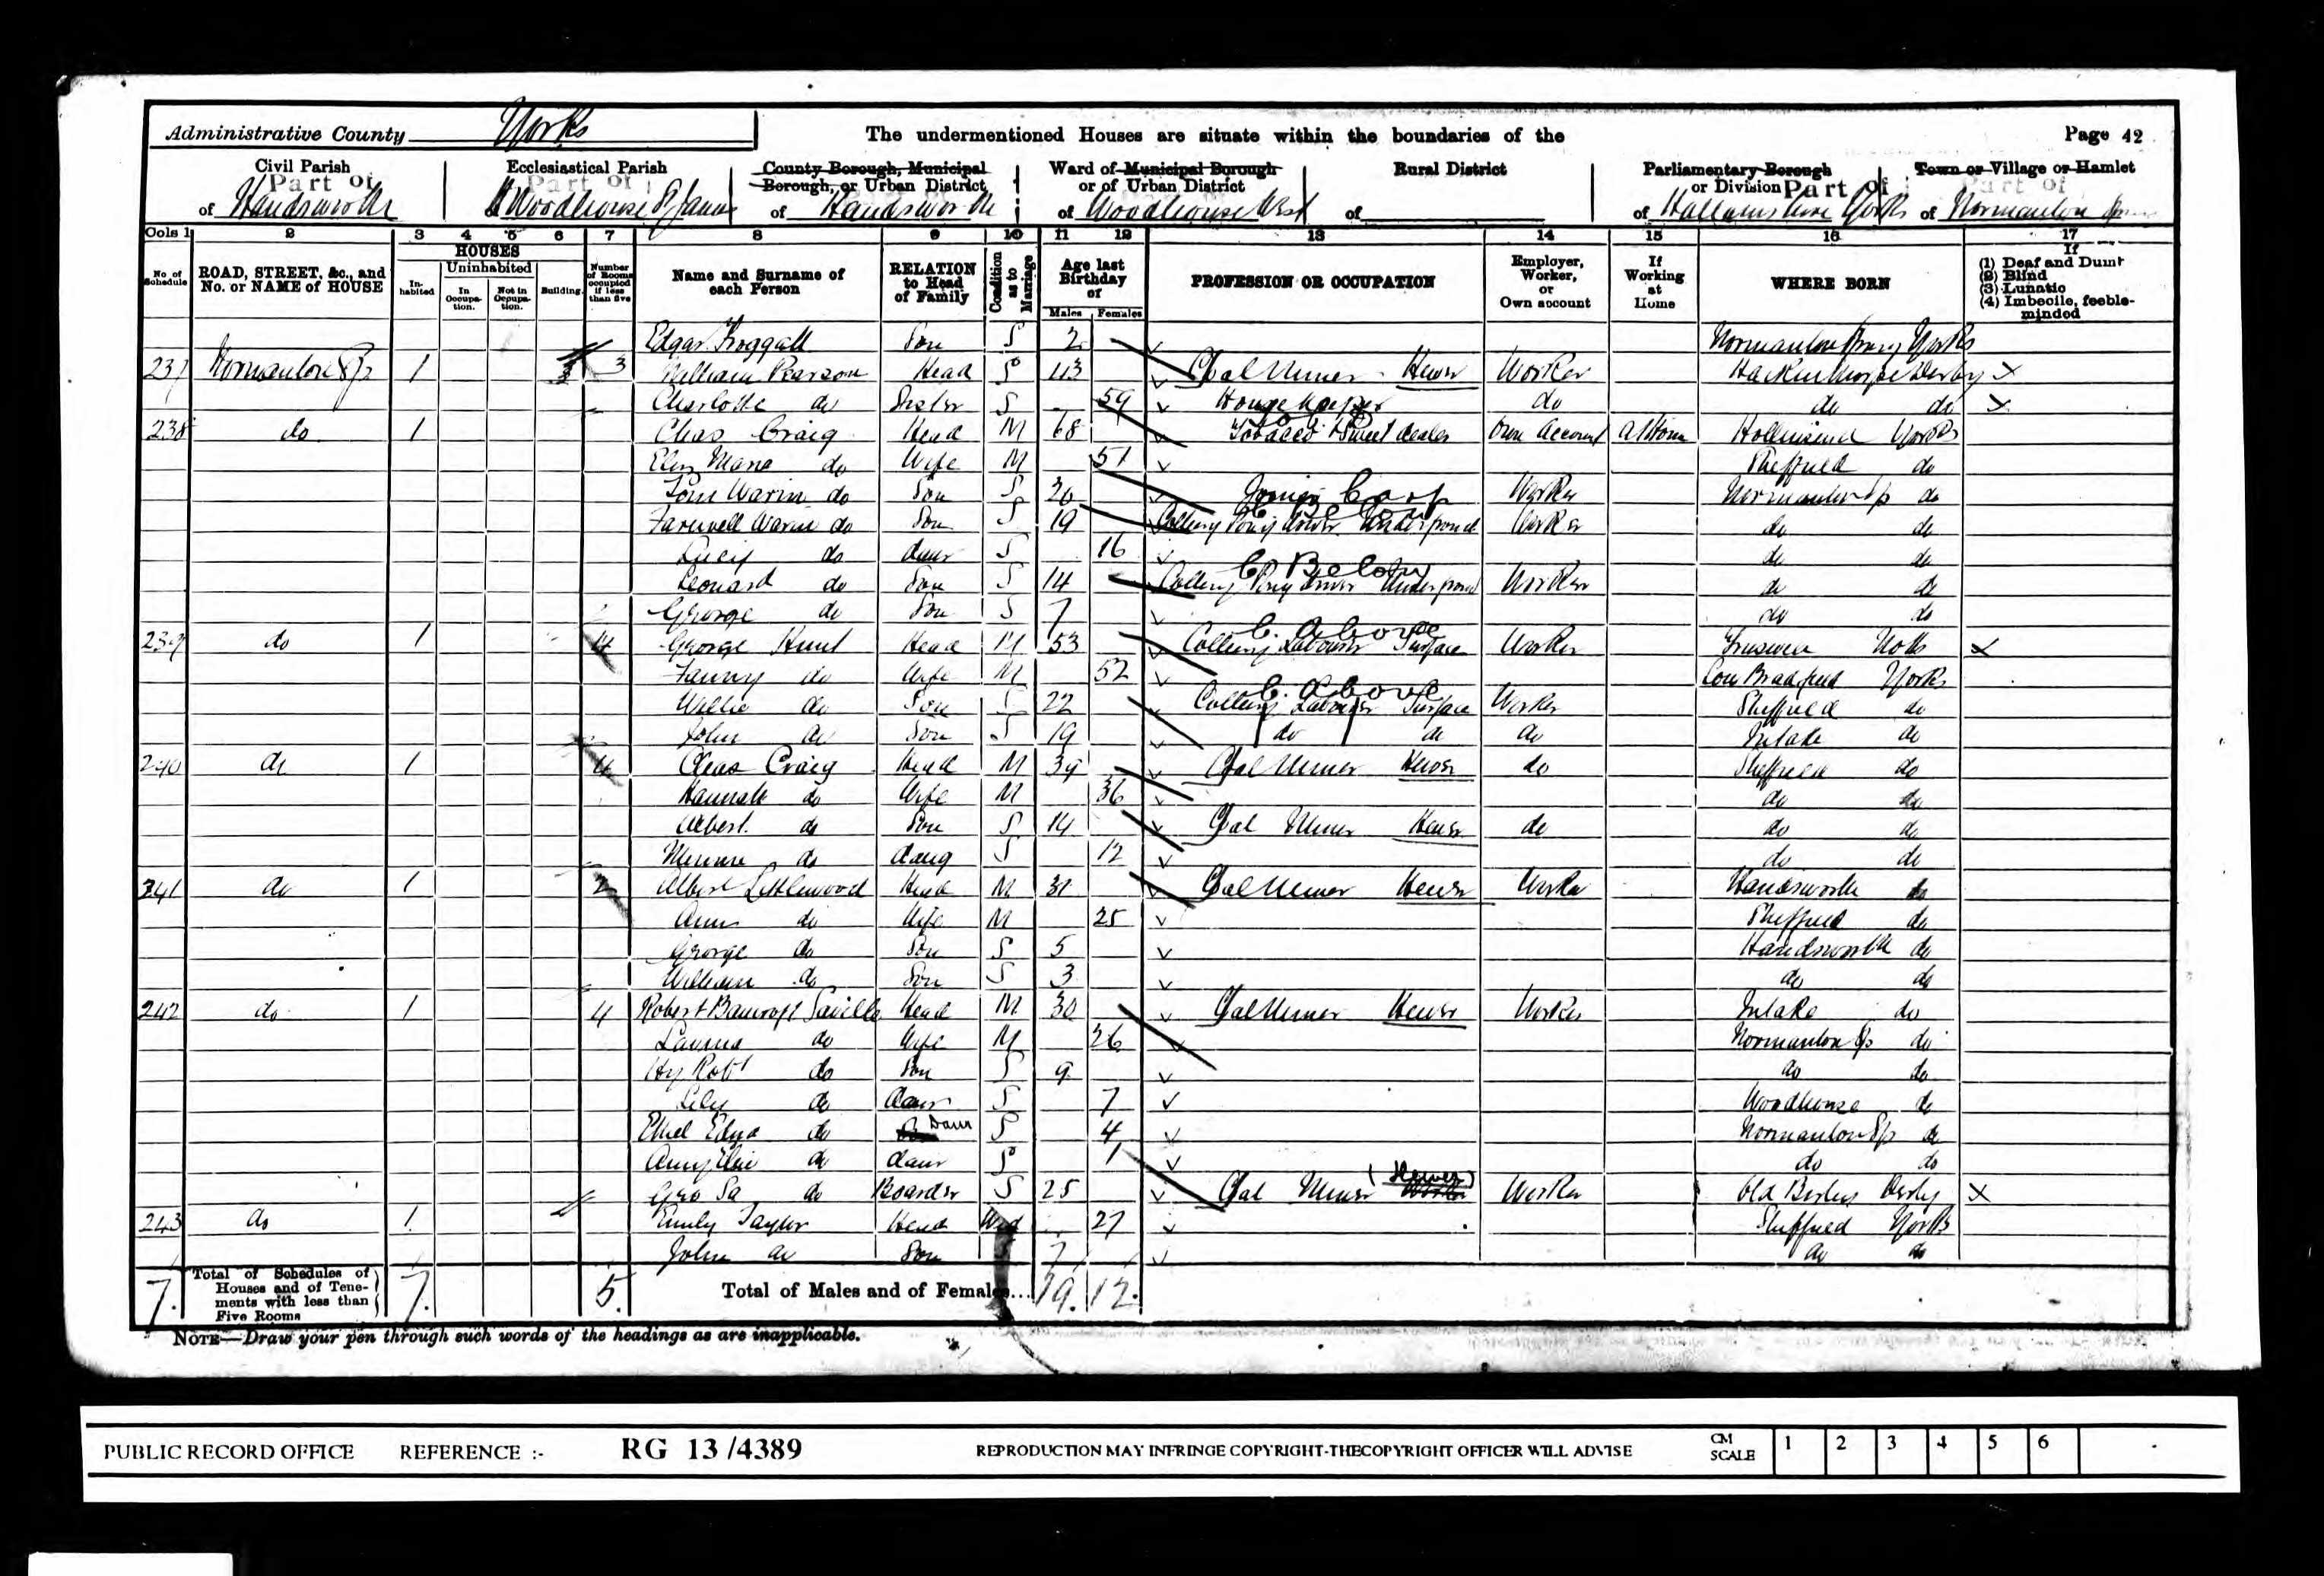 Administrative County Yorks The undermentioned Houses are situate within the boundaries of the Page 42
Civil Parish Ecclesiastical Parish County Borough, Municipal Ward of Municipal Borough Rural District Parliamentary Borough Town or Village or Hamlet
Part of Part of Borough, or Urban District or of Urban District or Division Part of Part of
of Handsworth Woodhouse St James of Handsworth of Woodhouse West of of Hallamshire Yorks of Normanton
Cols 1 2 3 4 5 6 7 8 9 10 11 12 13 14 15 16 17
No of Schedule ROAD, STREET, &c., and No. or NAME of HOUSE HOUSES Inhabited Uninhabited In Occupation. Not in Occupation. Building. Number of Rooms occupied if less than five Name and Surname of each Person RELATION to Head of Family Condition as to Marriage Age last Birthday of Males Females PROFESSION OR OCCUPATION Employer, Worker, or Own account If Working at Home WHERE BORN If (1) Deaf and Dumb (2) Blind (3) Lunatic (4) Imbecile, feeble-minded
Edgar Froggatt Son S 2 Normanton Spring Yorks
237 Normanton Sp 1 3 William Pearson Head S 43 Coal Miner Hewer Worker Hackenthorpe Derby X
Charlotte do Sister S 59 Housekeeper do do do X
238 do 1 Chas Craig Head M 68 Tobacco & Sweet dealer Own Account At Home Hollinsend Yorks
Eliz Maria do Wife M 51 Sheffield do
Tom Warin do Son S 20 Joiner Carp Worker Normanton Sp do
Farewell Warin do Son S 19 Colliery Pony driver Underground C. Below Worker do do
Lucy do daur S 16 do do
Leonard do Son S 14 Colliery Pony driver Underground C. Below Worker do do
George do Son S 7 do do
239 do 1 4 George Hunt Head M 53 Colliery Labourer Surface C. above Worker Notts X
Fanny do Wife M 52 Low Bradfield Yorks
Willie do Son S 22 Colliery Labourer Surface C. above Worker Sheffield do
John do Son S 19 do do do Intake do
240 do 1 4 Chas Craig Head M 39 Coal Miner Hewer do Sheffield do
Hannah do Wife M 36 do do
Albert do Son S 14 Coal Miner Hewer do do do
Minnie do daug S 12 do do
241 do 1 2 Albert Littlewood Head M 31 Coal Miner Hewer Worker Handsworth do
Ann do Wife M 25 Sheffield do
George do Son S 5 Handsworth do
William do Son S 3 do do
242 do 1 4 Robert Bancroft Saville Head M 30 Coal Miner Hewer Worker Intake do
Lavinia do Wife M 26 Normanton Sp do
Hy Robt do Son S 9 do do
Lily do daur S 7 Woodhouse do
Ethel Edna do Daur S 4 Normanton Sp do
Amy Elsie do daur S 1 do do
Geo do Boarder S 25 Coal Miner (Hewer) Worker Old Birley Derby X
243 do 1 Emily Taylor Head Wid 27 Sheffield Yorks
John do Son S 7 do do
7. Total of Schedules of Houses and of Tenements with less than Five Rooms 7. 5. Total of Males and of Females... 19. 12.
NOTE—Draw your pen through such words of the headings as are inapplicable.
PUBLIC RECORD OFFICE REFERENCE :- RG 13/4389 REPRODUCTION MAY INFRINGE COPYRIGHT-THECOPYRIGHT OFFICER WILL ADVISE CM SCALE 1 2 3 4 5 6